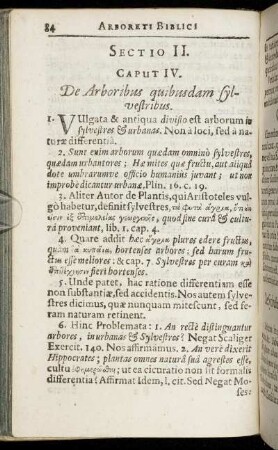 84 ARBORETI BIBLICI
SECTIO II.
CAPUT IV.
De Arboribus quibusdam ſyl-
veſtribus.
1. VUlgata & antiqua diviſio eſt arborum in
ſylveſtres & urbanas. Non à loci, ſed à natu-
ræ differentiâ.
2. Sunt enim arborum quædam omninò ſylveſtres,
quædam urbaniores: Hæ mites quæ fructu, aut aliquâ
dote umbrarumve officio humaniùs juvant; ut non
improbè dicantur urbanæ. Plin. 16. c. 19.
3. Aliter Autor de Plantis, qui Ariſtoteles vul-
gò habetur, definit ſylveſtres,
quod ſine curâ & cultu-
râ proveniant, lib. 1. cap. 4.
4. Quare addit hæc ἄγρια plures edere fructus,
quàm hortenſes arbores: ſed harum fru-
ctus eſſe meliores: & cap. 7. Sylveſtres per curam
fieri hortenſes.
5. Unde patet, hac ratione differentiam eſſe
non ſubſtantiæ, ſed accidentis. Nos autem ſylve-
ſtres dicimus, quæ nunquam miteſcunt, ſed fe-
ram naturam retinent.
6. Hinc Problemata: 1. An rectè diſtinguantur
arbores, in urbanas & ſylveſtres? Negat Scaliger
Exercit. 140. Nos affirmamus. 2. An verè dixerit
Hippocrates; plantas omnes naturâ ſuâ agreſtes eſſe,
cultu ut ea cicuratio non ſit formalis
differentia? Affirmat Idem, l. cit. Sed Negat Mo-
ſes: